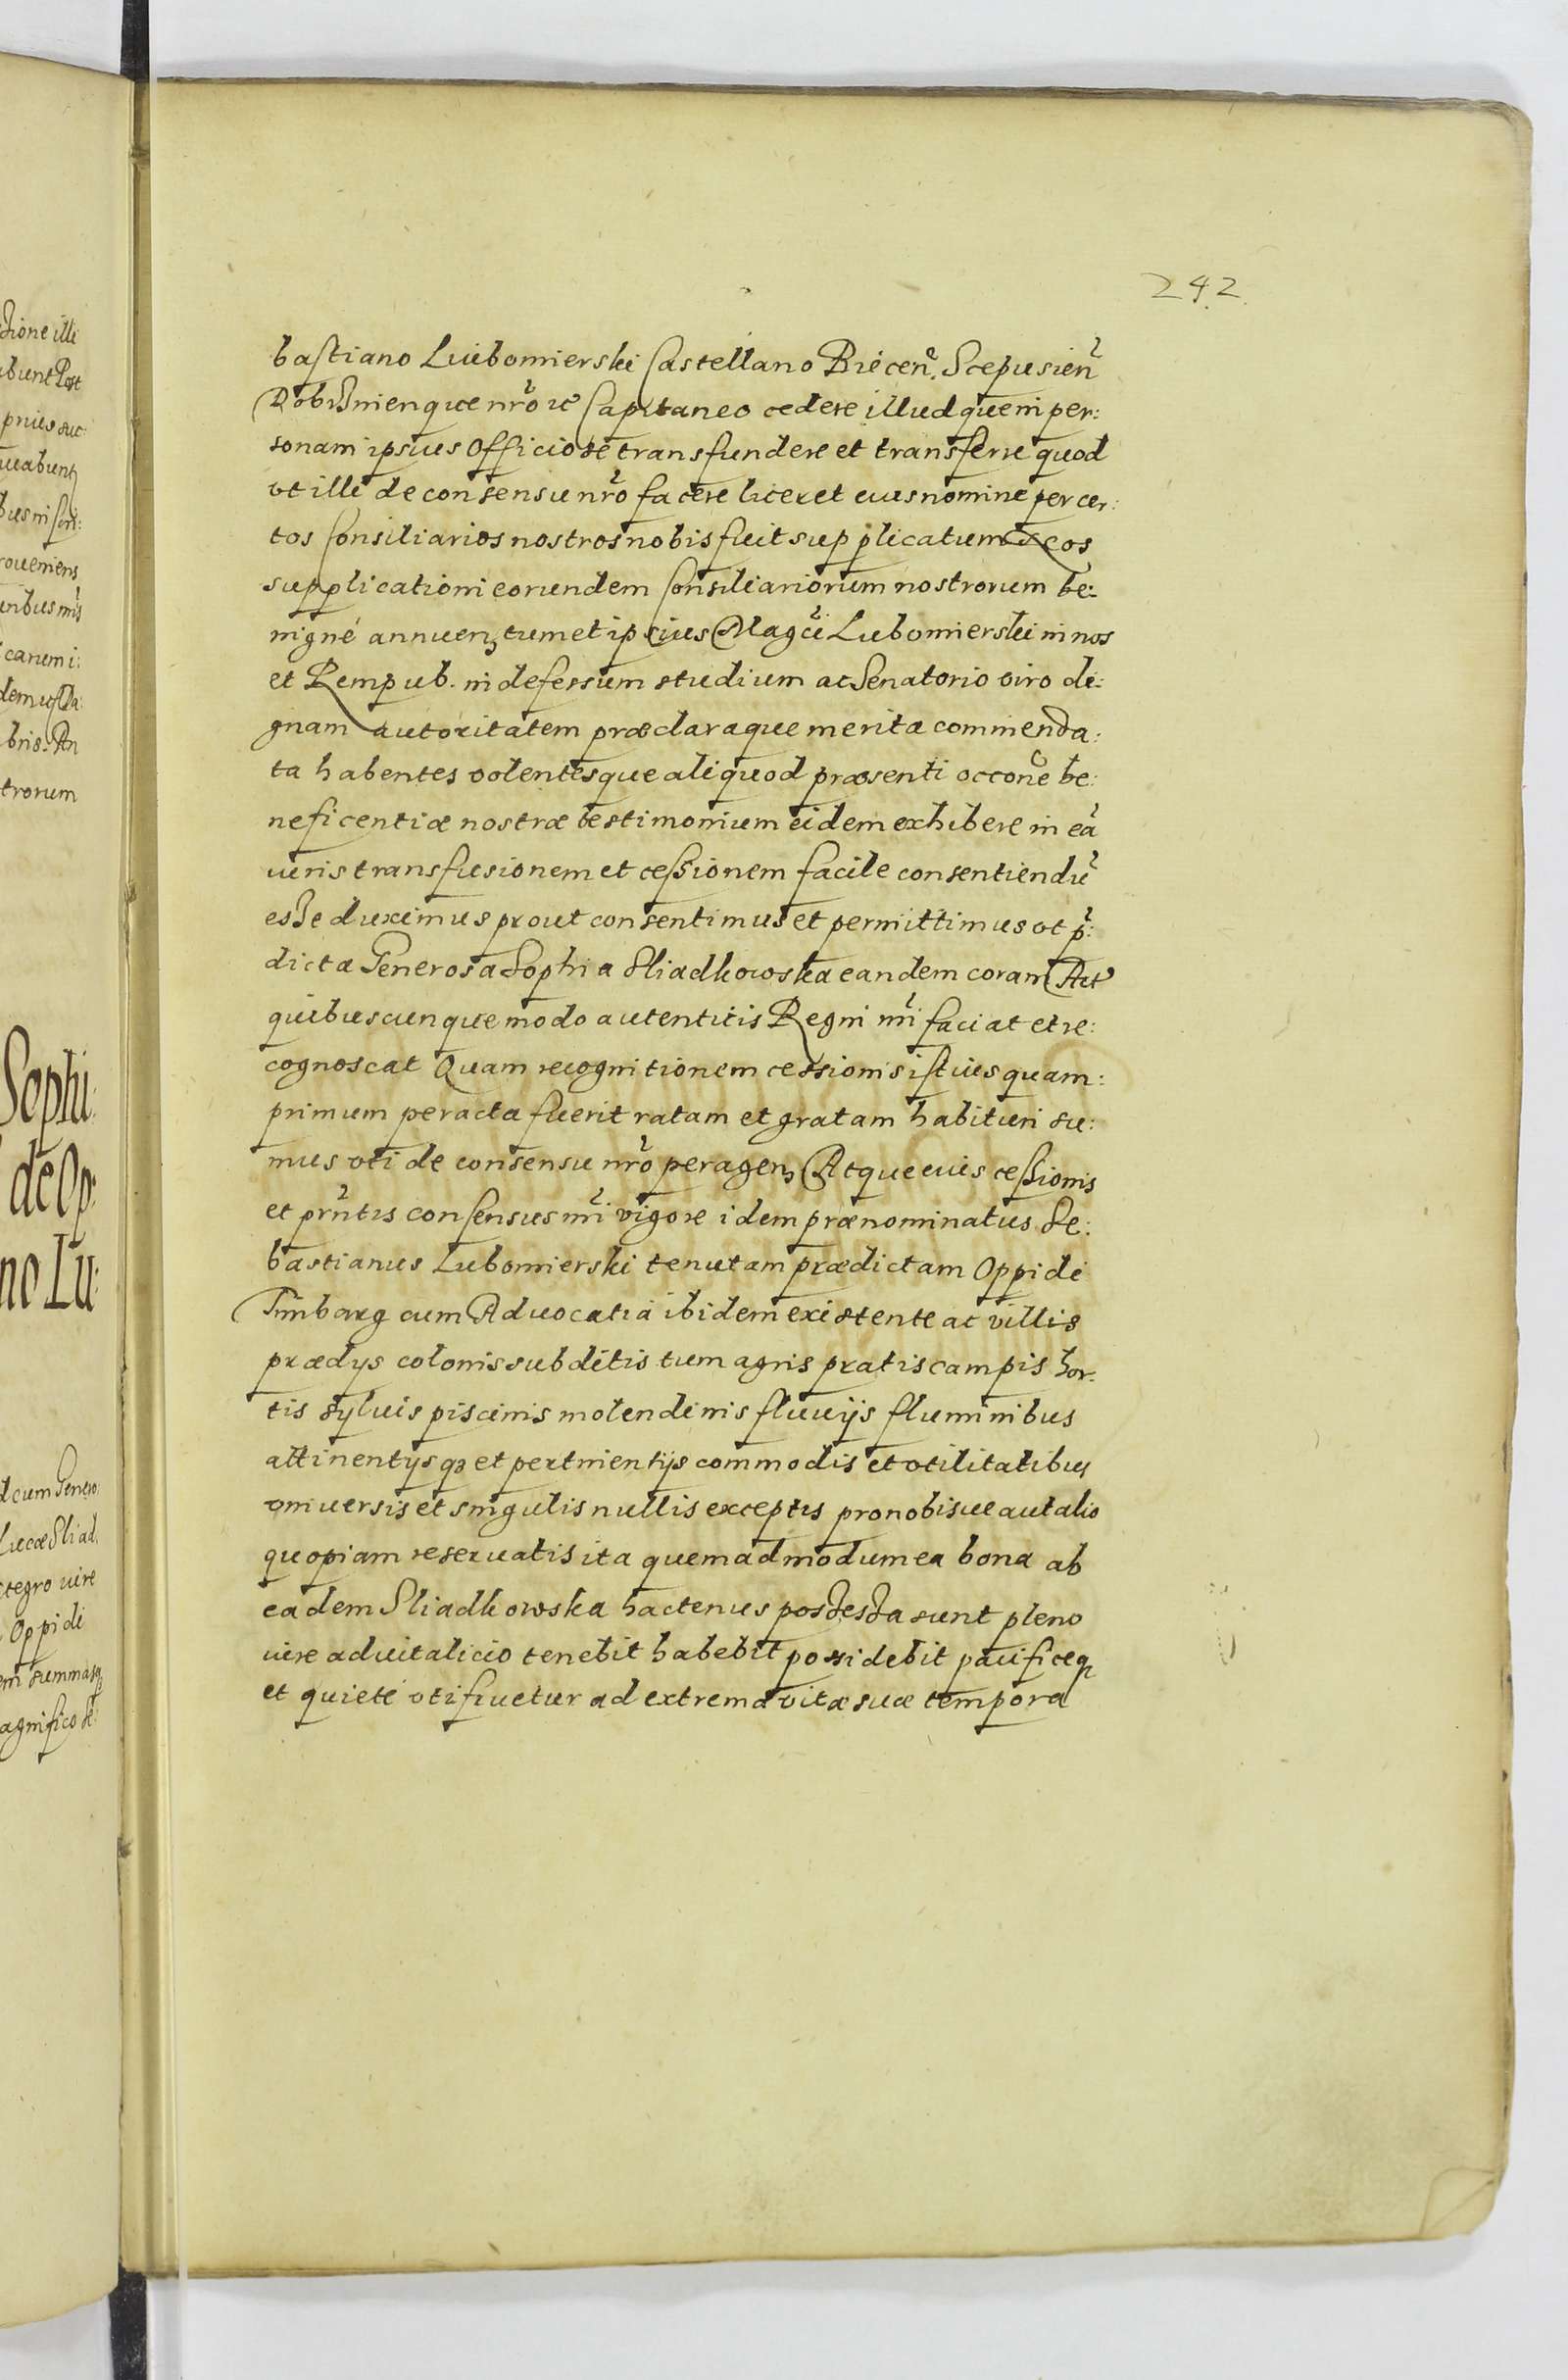 242
bastiano Luibomierski Castellano Biecen̄. Scepusien̄
Dobcznienque nr̄o ac Capitaneo cedere illudque in per:
sonam ipsius Officiose transfundere et transferre quod
vt illi de consensu nr̄o facere liceret eius nomine per cer:
tos Consiliarios nostros nobis fuit supplicatum
supplicationi eorundem Consiliariorum nostrorum be:
nigné annuen, tum et ipsius Magci Lubomierski in nos
et Rempub. indefessum studium ac Senatorio viro di:
gnam autoritatem præclaraque merita commenda:
ta habentes volentesque aliquod præsenti occone be:
neficentiæ nostræ testimonium eidem exhibere in eā
iuris transfusionem et cessionem facile consentiendū
esse duximus prout consentimus et permittimus vt p̄:
dicta Generosa Sophia Sliadkowska eandem coram Act
quibuscunque modo autenticis Regni nr̄i faciat et re:
cognoscat Quam recognitionem cessionis istius quam:
primum peracta fuerit ratam et gratam habituri su:
mus vti de consensu nr̄o peragen, Atque eius cessionis
et prn̄tis consensus nr̄i vigore idem prænominatus Se:
bastianus Lubomierski tenutam prædictam Oppidi
Timbarg cum Aduocatiá ibidem existente ac villis
prædys colonis subditis tum agris pratis campis hor:
tis syluis piscinis molendinis fluuijs fluminibus
attinentijsq3 et pertinentijs commodis et vtilitatibus
vniuersis et singulis nullis exceptis pro nobisue aut alio
quopiam reseruatis ita quemadmodum ea bona ab
eadem Sliadkowska hactenus possessa sunt pleno
iure aduitalicio tenebit habebit possidebit pacificeq
et quieté vti fruetur ad extrema vitæ suæ tempora
ctione illi
abunt Post
prius suc:
uabunt
bus in scri:
roueniens
unibus nr̄is
carum i:
bris. An
trorum
Sophi:
de Op:
no Lu:
d cum Genero:
Lucæ Sliad.
ctegro iure
Oppidi
em summasq
agnifico Se